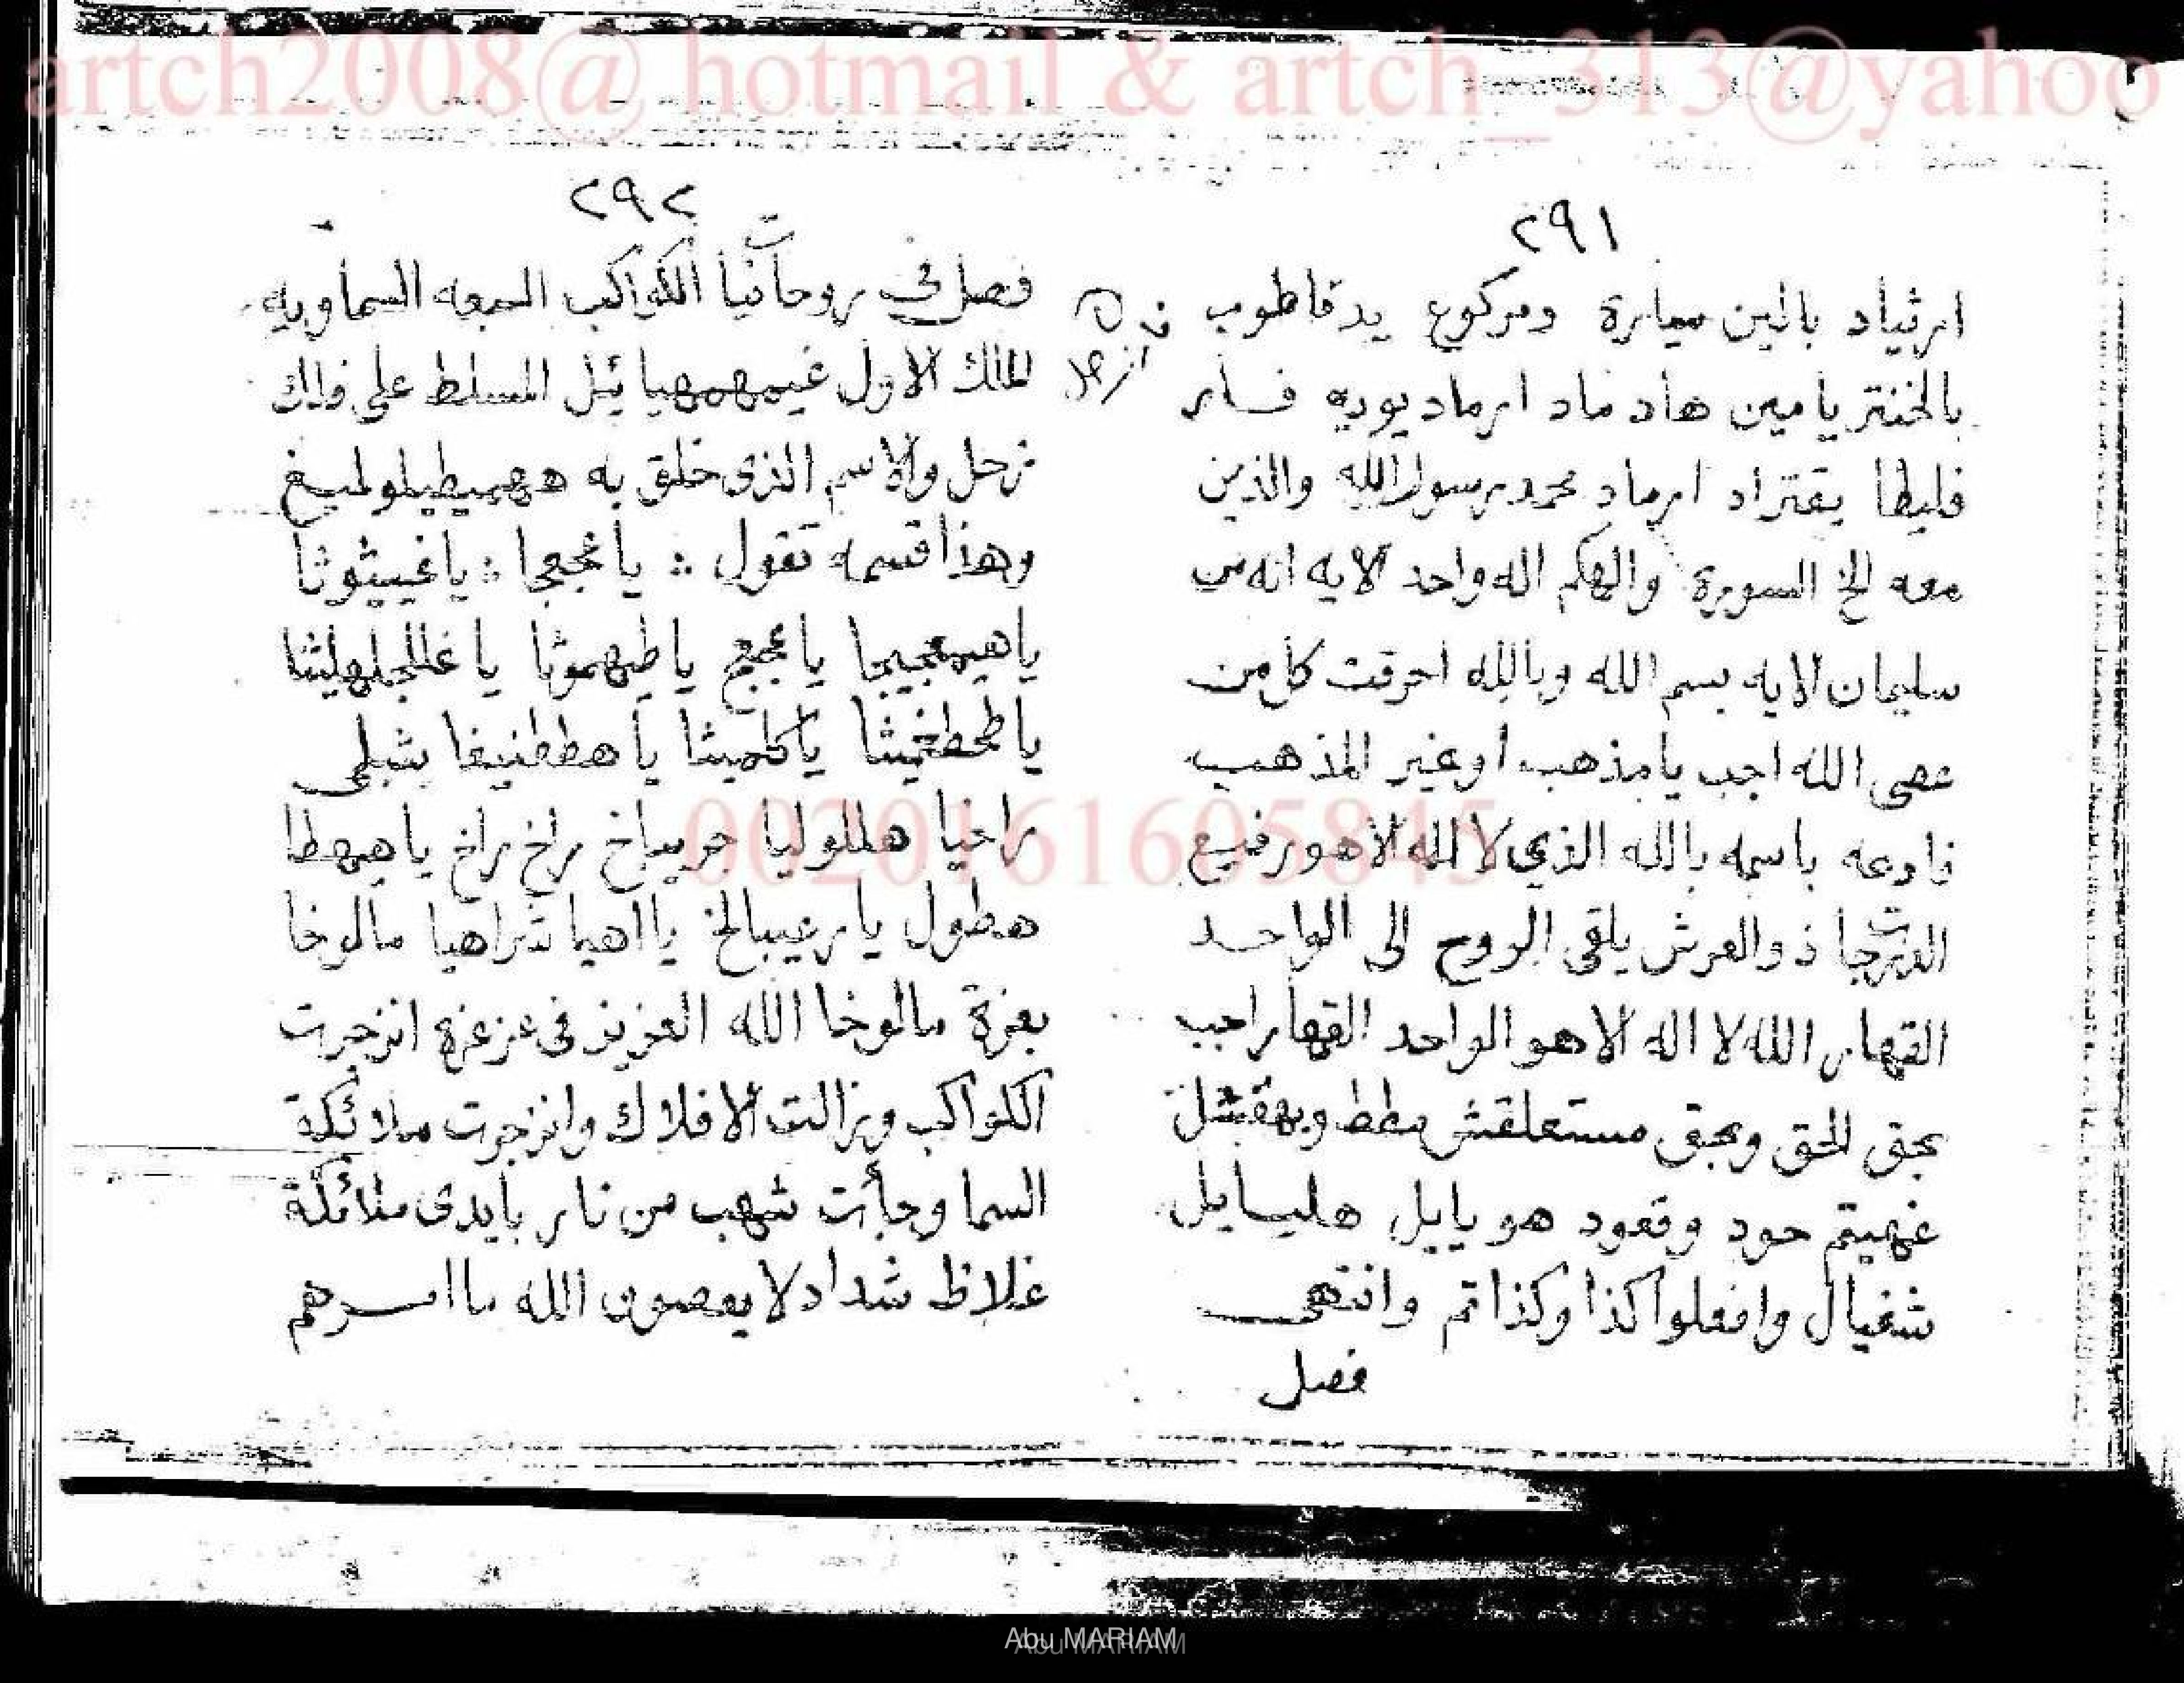 artch2008@ hotmail & artch_313@yahoo
٢٩١
ارثياد بالين سيارة ومركوع يدقاطوب
بالخنتريامين هاد ماد ارماد يوريه فسار
فليطا يقتراد ارماد محمد رسول الله والذين
معه الخ السورة والهكم اله واحد الايه انه من
سليمان الايه بسم الله وبالله احرقت كل من
عصى الله اجب يا مذهب أو غير المذهب
فادعه باسمه بالله الذي لا اله الا هو رفيع
الدرجات ذو العرش يلقى الروح الى الواحد
القهار الله لا اله الا هو الواحد القهار اجب
بحق الحق وبحق مستعلقش مطط وبهقشل
غهيتم حود وقعود هو يابيل هليسايل
شغيال وافعلوا كذا وكذا تم وانتهى
فصل
٢٩٢
فصل في روحانيات الكواكب السبعه السماويه
الملك الاول غيمهمهيائيل المسلط على فلك
زحل والاسم الذى خلق به ههميطيلولميغ
وهذا قسمه تقول : يا غججا : يا غيبثوثا
ياهيمعجيجا يا عججع يا طيهموثا يا غللجلهليثا
يا طحطغيثا يا كلميثا يا هططنيفا بثبلى
راخيا هللوليا جريداخ راخ راخ يا هيهطا
هطول يا رعيبالخ يا اهيا شراهيا مالوخا
بعزة مالوخا الله العزيز فى عز عزه انزجرت
الكواكب وزالت الافلاك وانزجرت ملائكة
السما وجأت شهب من نار بايدى ملائكة
غلاظ شداد لا يعصون الله ما امرهم
0020161605845
Abu MARIAM
Abu MARIAM